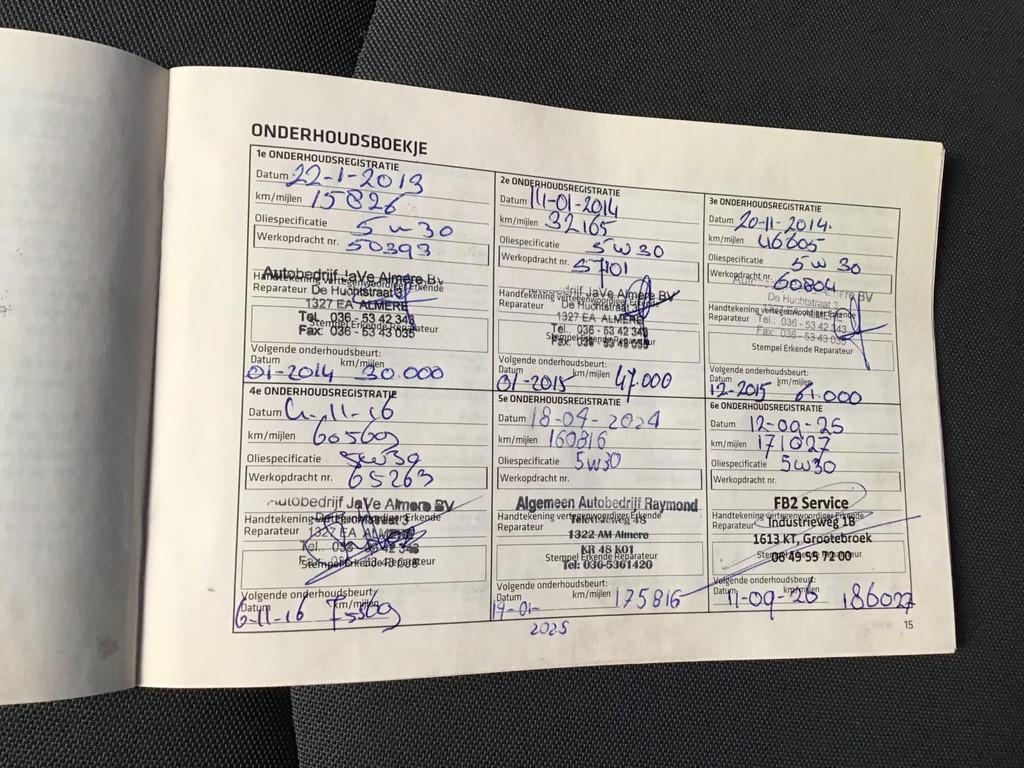 ONDERHOUDSBOEKJE
1e ONDERHOUDSREGISTRATIE
Datum 22-1-2013
km/mijlen 15826
Oliespecificatie 5w30
Werkopdracht nr. 50393
Autobedrijf JaVe Almere BV
Handtekening vertegenwoordiger Erkende
Reparateur De Huchtstraat 3
1327 EA ALMERE
Tel. 036 - 53 42 343
Stempel Erkende Reparateur
Fax: 036 - 53 43 035
Volgende onderhoudsbeurt:
Datum km/mijlen
01-2014 30.000
2e ONDERHOUDSREGISTRATIE
Datum 14-01-2014
km/mijlen 32165
Oliespecificatie 5w30
Werkopdracht nr. 57101
drijf JaVe Almere BV
Handtekening vertegenwoordiger Erkende
Reparateur De Huchtstraat 3
1327 EA ALMERE
Tel. 036 - 53 42 343
Stempel Erkende Reparateur
Fax: 036 - 53 43 035
Volgende onderhoudsbeurt:
Datum km/mijlen
01-2015 47.000
3e ONDERHOUDSREGISTRATIE
Datum 20-11-2014.
km/mijlen 46605
Oliespecificatie 5w30
Werkopdracht nr. 60804
BV
De Huchtstraat 3
Handtekening vertegenwoordiger Erkende
Reparateur
Tel.: 036 - 53 42 343
Fax: 036 - 53 43 035
Stempel Erkende Reparateur
Volgende onderhoudsbeurt:
Datum km/mijlen
12-2015 61.000
4e ONDERHOUDSREGISTRATIE
Datum 11-16
km/mijlen 60569
Oliespecificatie 5w30
Werkopdracht nr. 65263
Autobedrijf JaVe Almere BV
Handtekening vertegenwoordiger Erkende
Reparateur 1327 EA ALMERE
Stempel Erkende Reparateur
Volgende onderhoudsbeurt:
Datum km/mijlen
6-11-16 75569
5e ONDERHOUDSREGISTRATIE
Datum 18-04-2024
km/mijlen 160816
Oliespecificatie 5w30
Werkopdracht nr.
Algemeen Autobedrijf Raymond
Handtekening vertegenwoordiger Erkende
Reparateur 48
1322 AM Almere
KR 48 K01
Stempel Erkende Reparateur
Tel: 036-5361420
Volgende onderhoudsbeurt:
Datum km/mijlen 175816
19-01-
2025
6e ONDERHOUDSREGISTRATIE
Datum 12-09-25
km/mijlen 171027
Oliespecificatie 5w30
Werkopdracht nr.
FB2 Service
Handtekening vertegenwoordiger Erkende
Reparateur Industrieweg 1B
1613 KT, Grootebroek
Stempel Erkende Reparateur
06 49 55 72 00
Volgende onderhoudsbeurt:
Datum km/mijlen
11-09-26 186027
15